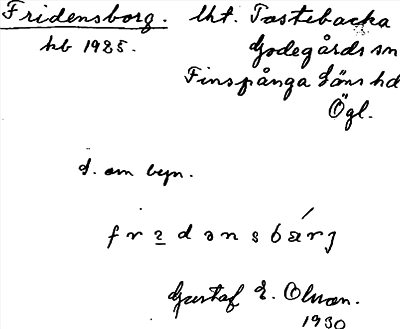 Fridensborg. lht. Tostebacka
hb 1985. Godegårds sn
Finspånga läns hd
Ögl.
d. om byn.
frədənsbárj
Gustaf E. Olsson.
1930